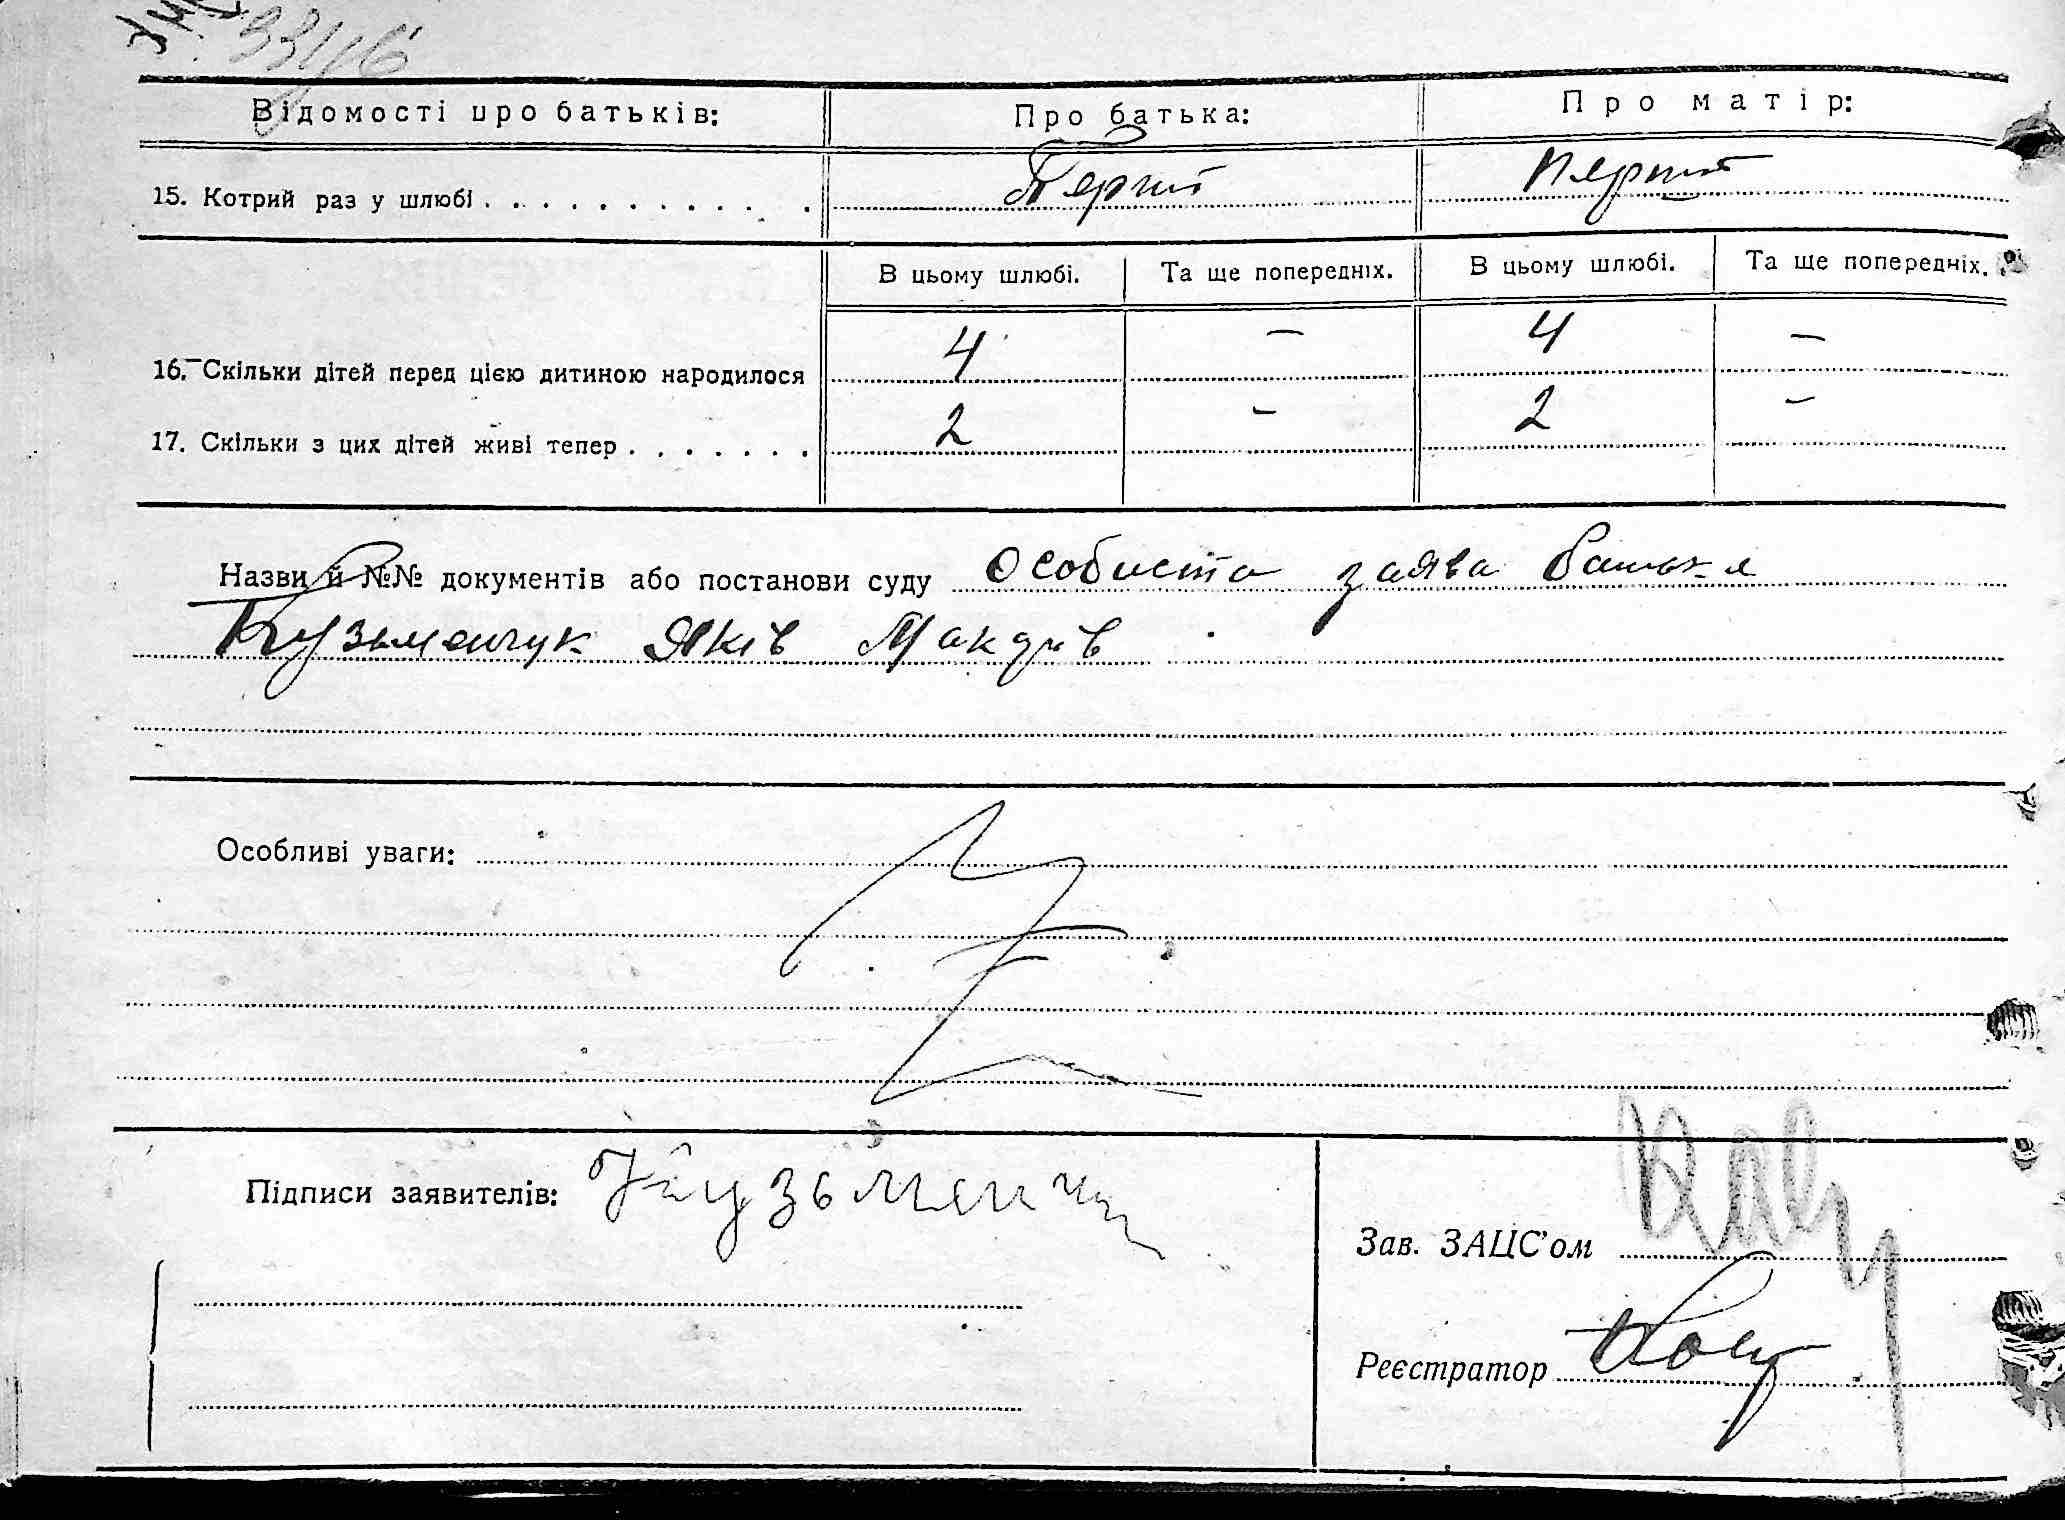 3346
Відомості про батьків: Про батька: Про матір:
15. Котрий раз у шлюбі . . . . . . . . . . . . Перший перший
В цьому шлюбі. Та ще попередніх. В цьому шлюбі. Та ще попередніх.
16. Скільки дітей перед цією дитиною народилося 4 – 4 –
17. Скільки з цих дітей живі тепер . . . . . . . 2 – 2 –
Назви й №№ документів або постанови суду особиста заява батька
Кузьменчук Яків
Особливі уваги:
Підписи заявителів: Кузьменчук
Зав. ЗАЦС'ом
Реєстратор